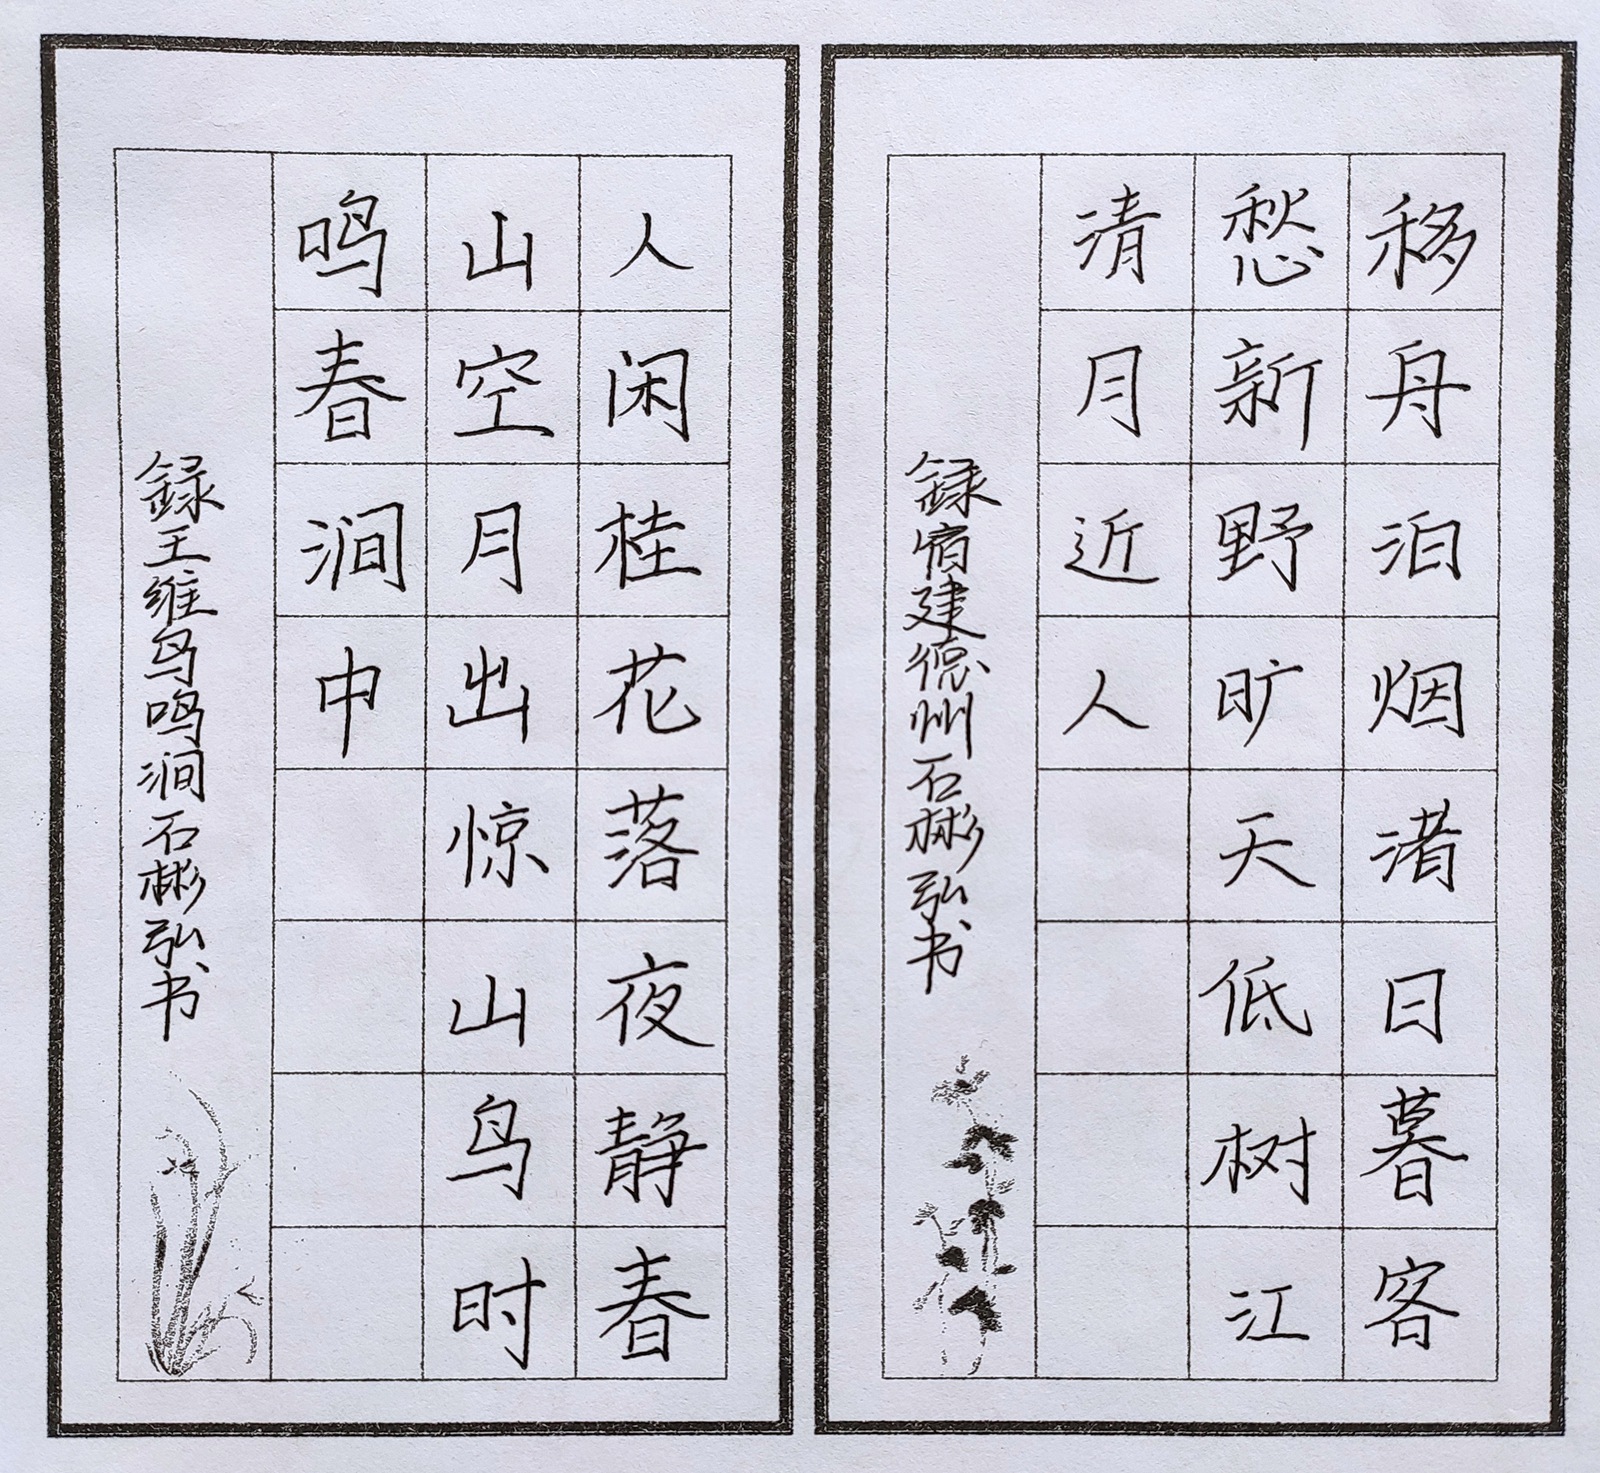 移舟泊烟渚日暮客
愁新野旷天低树江
清月近人
録宿建德州石彬弘书
人闲桂花落夜静春
山空月出惊山鸟时
鸣春涧中
録王维鸟鸣涧石彬弘书